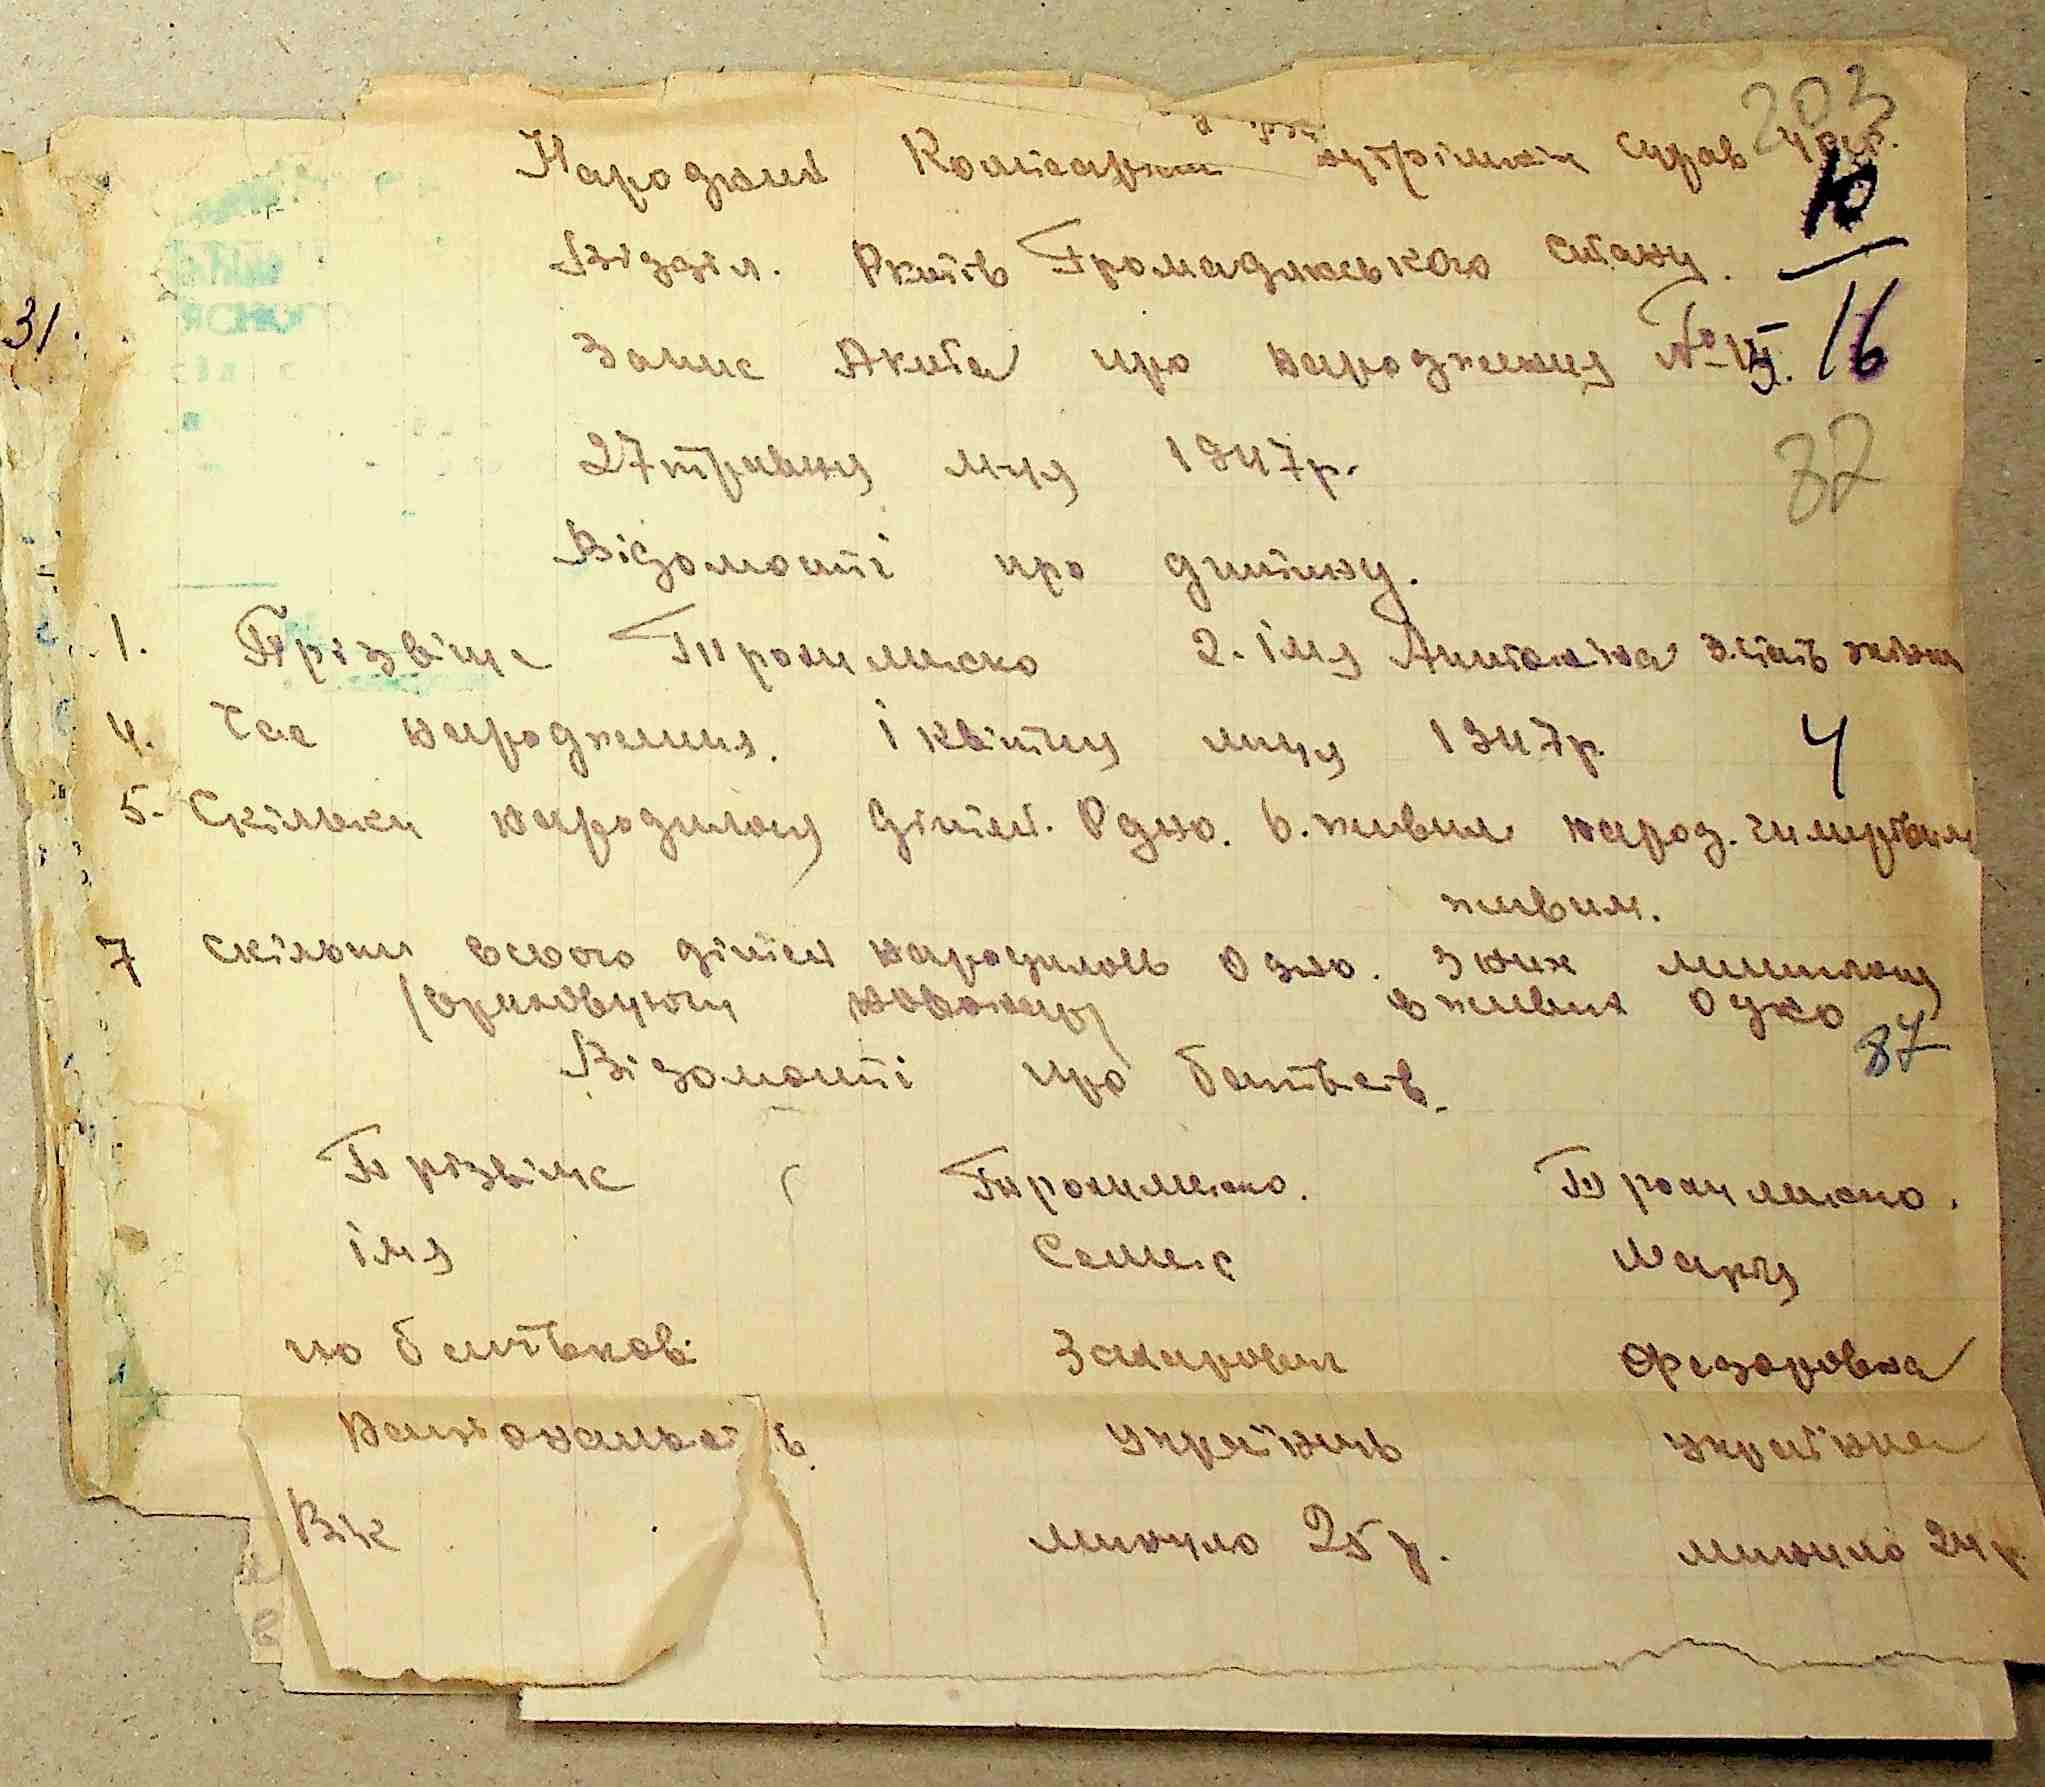 203
Народний Комісаріат внутрішніх справ УРСР.
Відділ. Актів Громадянського стану.
10
16
31.
Запис Акта про народження №
27 травня м-ця 1947р.
32
Відомості про дитину.
1. Прізвіще Трохименко 2. імя Антоніна 3. стать жіноч
4. Час народження. 1 квітня м-ця 1947р. 4
5. Скільки народилося дітей. Одно. 6. живим народ. чи мертвим
живим.
7 Скільки всього дітей народилось Одно. З них лишилося
(враховуючи в живих Одно
87
Відомості про батьків.
Прізвіще Трохименко. Трохименко.
імя Семен Марія
по батькові Захарович Федоровна
Національність українець українка
Вік минуло 25 р. минуло 24 р.